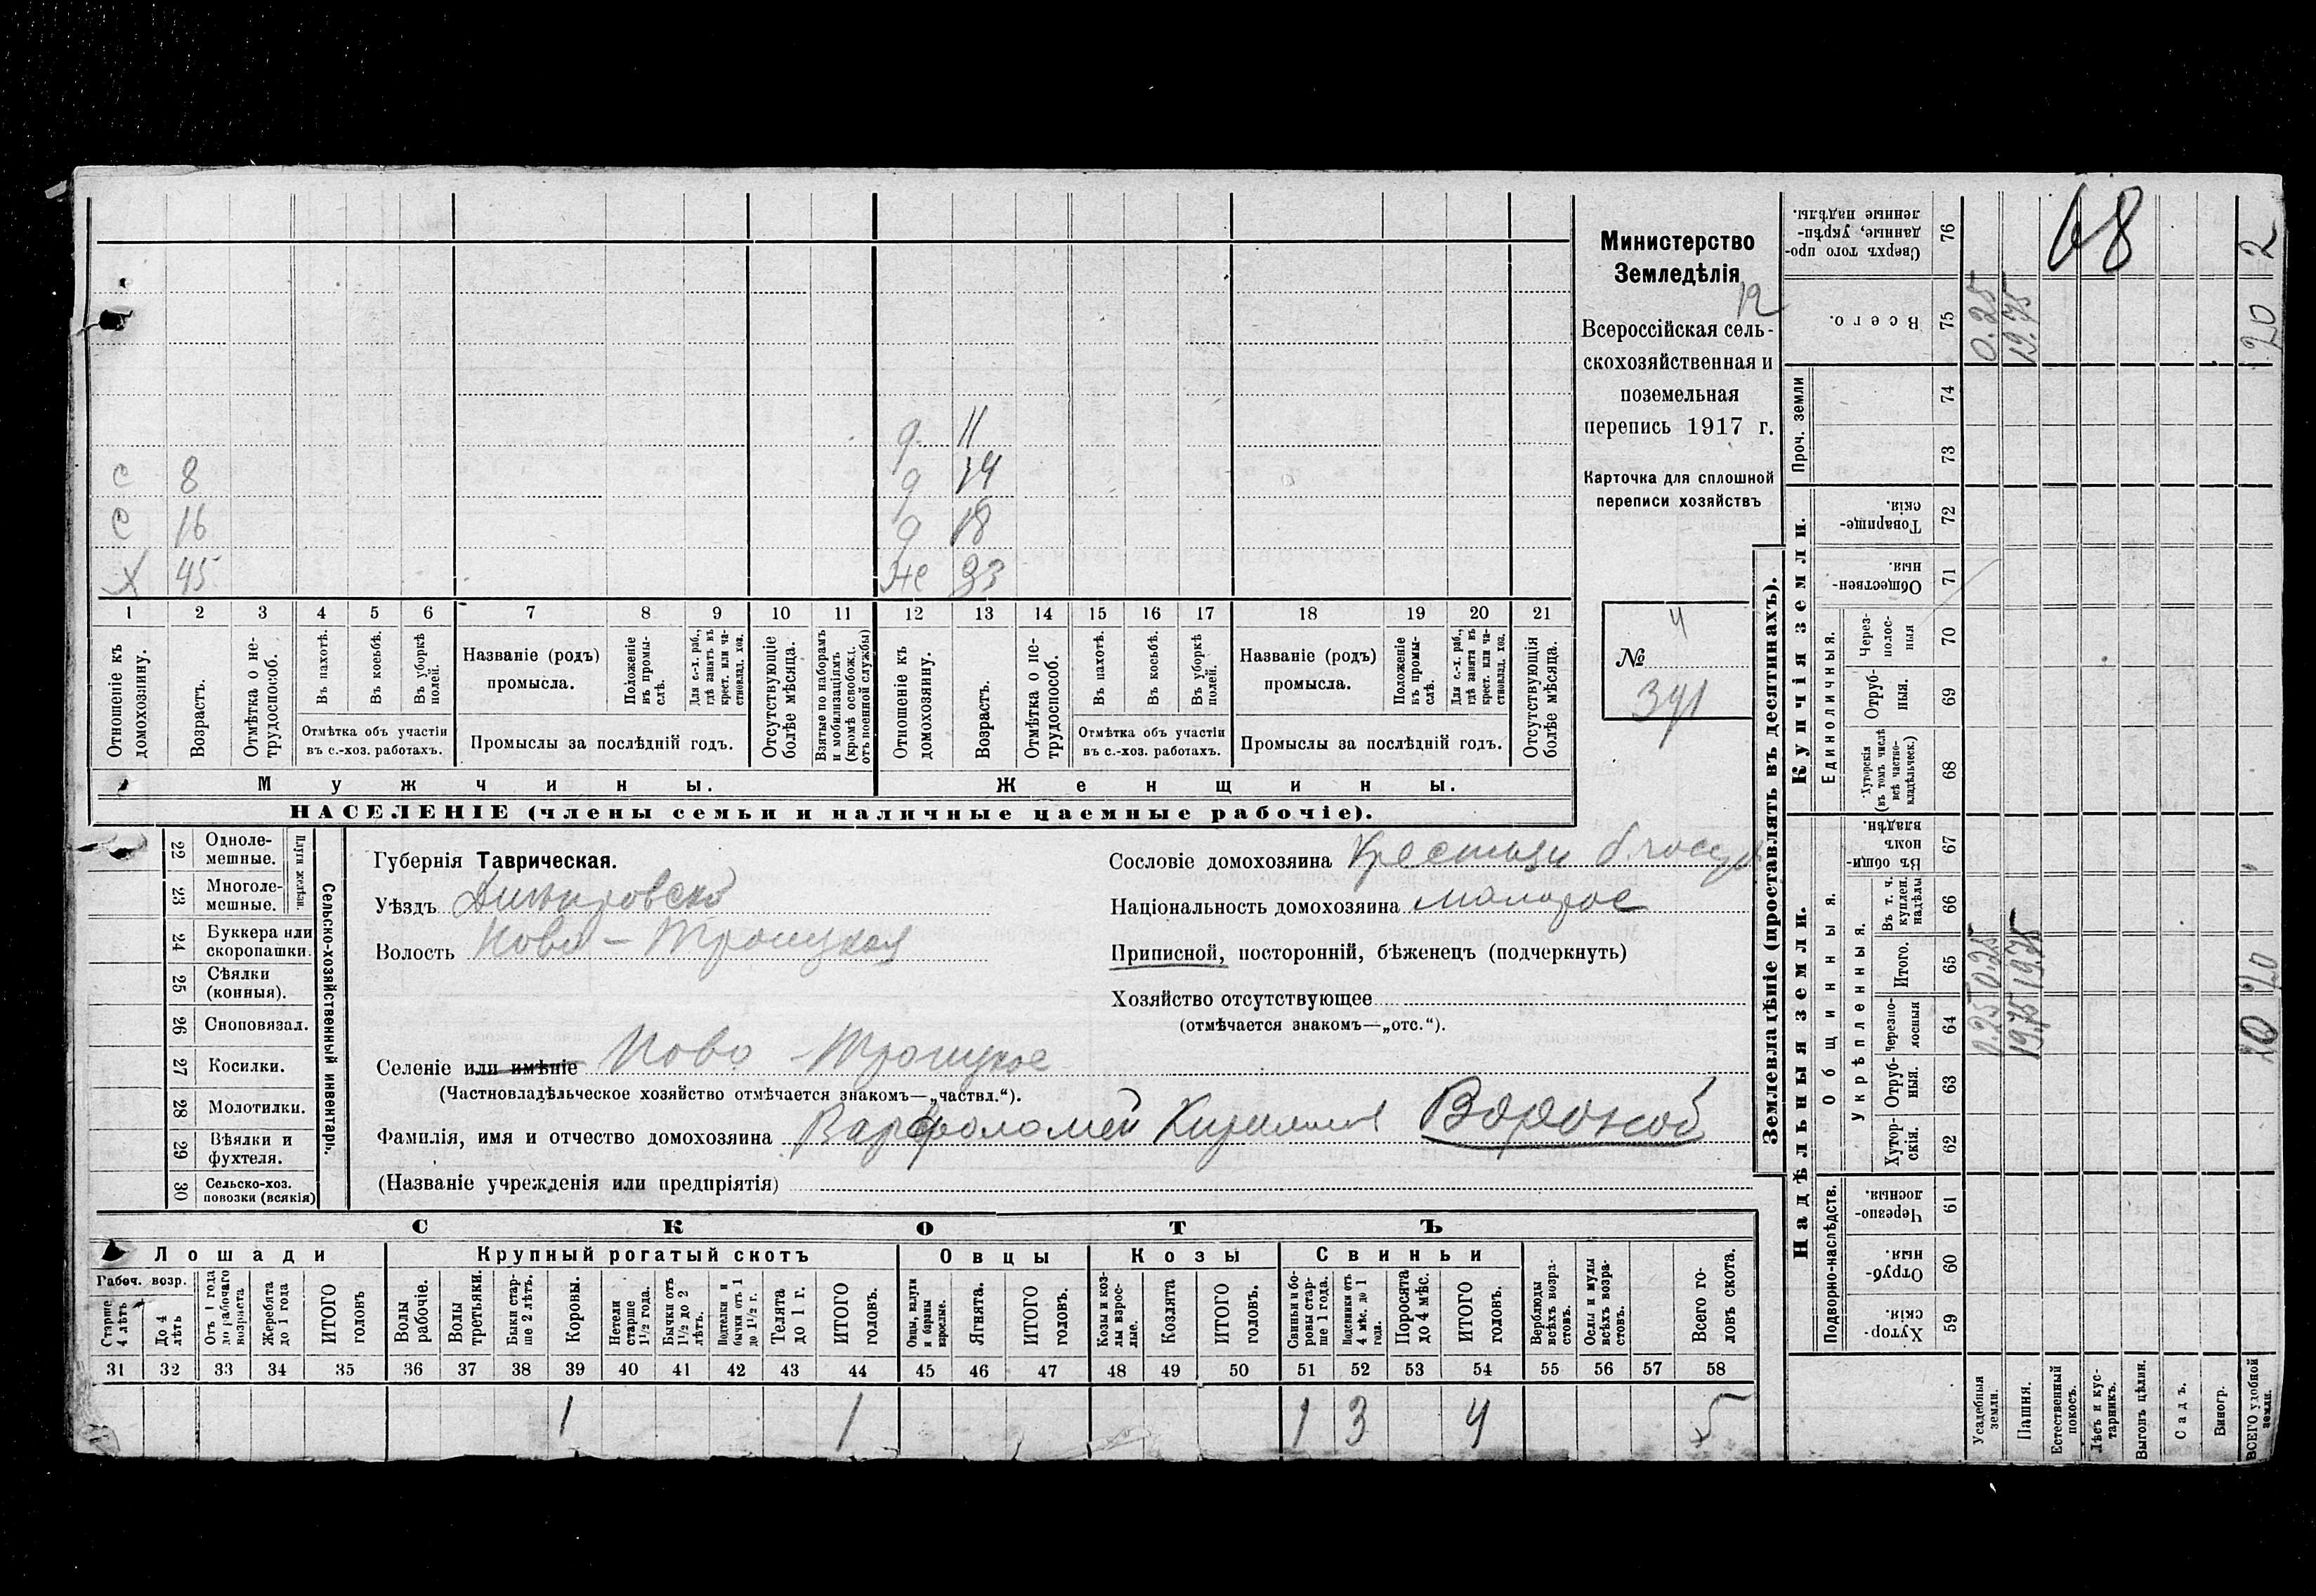 68
Министерство
Земледѣлія
12
Всероссійская сель-
скохозяйственная и
поземельная
перепись 1917 г.
Карточка для сплошной
переписи хозяйствъ
4
№
341
д 11
с 8 д 14
с 16 д 18
х 45 же 33
1 2 3 4 5 6 7 8 9 10 11 12 13 14 15 16 17 18 19 20 21
Отношеніе къ домохозяину.
Возрастъ.
Отмѣтка о не-трудоспособ.
Въ пахотѣ.
Въ косьбѣ.
Въ уборкѣ полей.
Отмѣтка объ участіи
въ с.-хоз. работахъ.
Названіе (родъ)
промысла.
Положеніе въ промы-слѣ.
Для с.-х. раб., гдѣ занятъ въ крест. или ча-стновлад. хоз.
Промыслы за послѣдній годъ.
Отсутствующіе болѣе мѣсяца.
Взятые по наборамъ и мобилизаціямъ (кромѣ освобожд. отъ военной службы)
Отношеніе къ домохозяину.
Возрастъ.
Отмѣтка о не-трудоспособ.
Въ пахотѣ.
Въ косьбѣ.
Въ уборкѣ полей.
Отмѣтка объ участіи
въ с.-хоз. работахъ.
Названіе (родъ)
промысла.
Положеніе въ промы-слѣ.
Для с.-х. раб., гдѣ занята въ крест. или ча-стновлад. хоз.
Промыслы за послѣдній годъ.
Отсутствующія болѣе мѣсяца.
Мужчины. Женщины.
НАСЕЛЕНІЕ (члены семьи и наличные наемные рабочіе).
22 Одноле-мешные.
23 Многоле-мешные.
Плуги желѣзн.
24 Буккера или скоропашки.
25 Сѣялки (конныя).
26 Сноповязал.
27 Косилки.
28 Молотилки.
29 Вѣялки и фухтеля.
30 Сельско-хоз. повозки (всякія)
Сельско-хозяйственный инвентарь.
Губернія Таврическая.
Уѣздъ Днѣпровскій
Волость Ново-Троицкая
Селеніе или имѣніе Ново-Троицкое
(Частновладѣльческое хозяйство отмѣчается знакомъ—„частвл.“).
Фамилія, имя и отчество домохозяина Варфоломей Кирилов Вороной
(Названіе учрежденія или предпріятія)
Сословіе домохозяина
Національность домохозяина малорос
Приписной, посторонній, бѣженецъ (подчеркнуть)
Хозяйство отсутствующее
(отмѣчается знакомъ—„отс.“).
СКОТЪ
Лошади Крупный рогатый скотъ Овцы Козы Свиньи
Рабоч. возр.
Старше 4 лѣтъ
До 4 лѣтъ
Отъ 1 года до рабочаго возраста
Жеребята до 1 года
ИТОГО головъ
Волы рабочіе.
Волы третьяки.
Быки стар-ше 2 лѣтъ.
Коровы.
Нетели старше 1½ года.
Бычки отъ 1½ до 2 лѣтъ.
Подтелки и бычки отъ 1 до 1½ г.
Телята до 1 г.
ИТОГО головъ.
Овцы, валухи и бараны взрослые.
Ягнята.
ИТОГО головъ.
Козы и коз-лы взрос-лые.
Козлята
ИТОГО головъ.
Свиньи и бо-ровы стар-ше 1 года.
Подсвинки отъ 4 мѣс. до 1 года.
Поросята до 4 мѣс.
ИТОГО головъ.
Верблюды всѣхъ возра-стовъ.
Ослы и мулы всѣхъ возра-стовъ.
Всего го-ловъ скота.
31 32 33 34 35 36 37 38 39 40 41 42 43 44 45 46 47 48 49 50 51 52 53 54 55 56 57 58
1 1 1 3 4 5
Землевладѣніе (проставлять въ десятинахъ).
Надѣльныя земли. Купчія земли. Проч. земли
Подворно-наслѣдств.
Общинныя.
Укрѣпленныя.
Единоличныя.
59 Хутор-скія.
60 Отруб-ныя.
61 Черезпо-лосныя.
62 Хутор-скія.
63 Отруб-ныя.
64 Черезпо-лосныя
65 Итого.
66 Въ т. ч. куплен. надѣлы
67 Въ общи-номъ владѣн.
68 Хуторскія (въ томъ числѣ всѣ частно-владѣльческ.)
69 Отруб-ныя.
70 Через-полос-ныя
71 Обществен-ныя.
72 Товарище-скія.
73
74
75 Всего.
76 Сверхъ того про-данные, укрѣп-ленные надѣлы.
Усадебныя земли. 0.25 0.25 0.25
Пашня. 19.75 19.75 19.75
Естественный покосъ.
Лѣсъ и кус-тарникъ.
Выгонъ цѣлин.
Садъ.
Виногр.
ВСЕГО удобной земли. 20 20 20 2